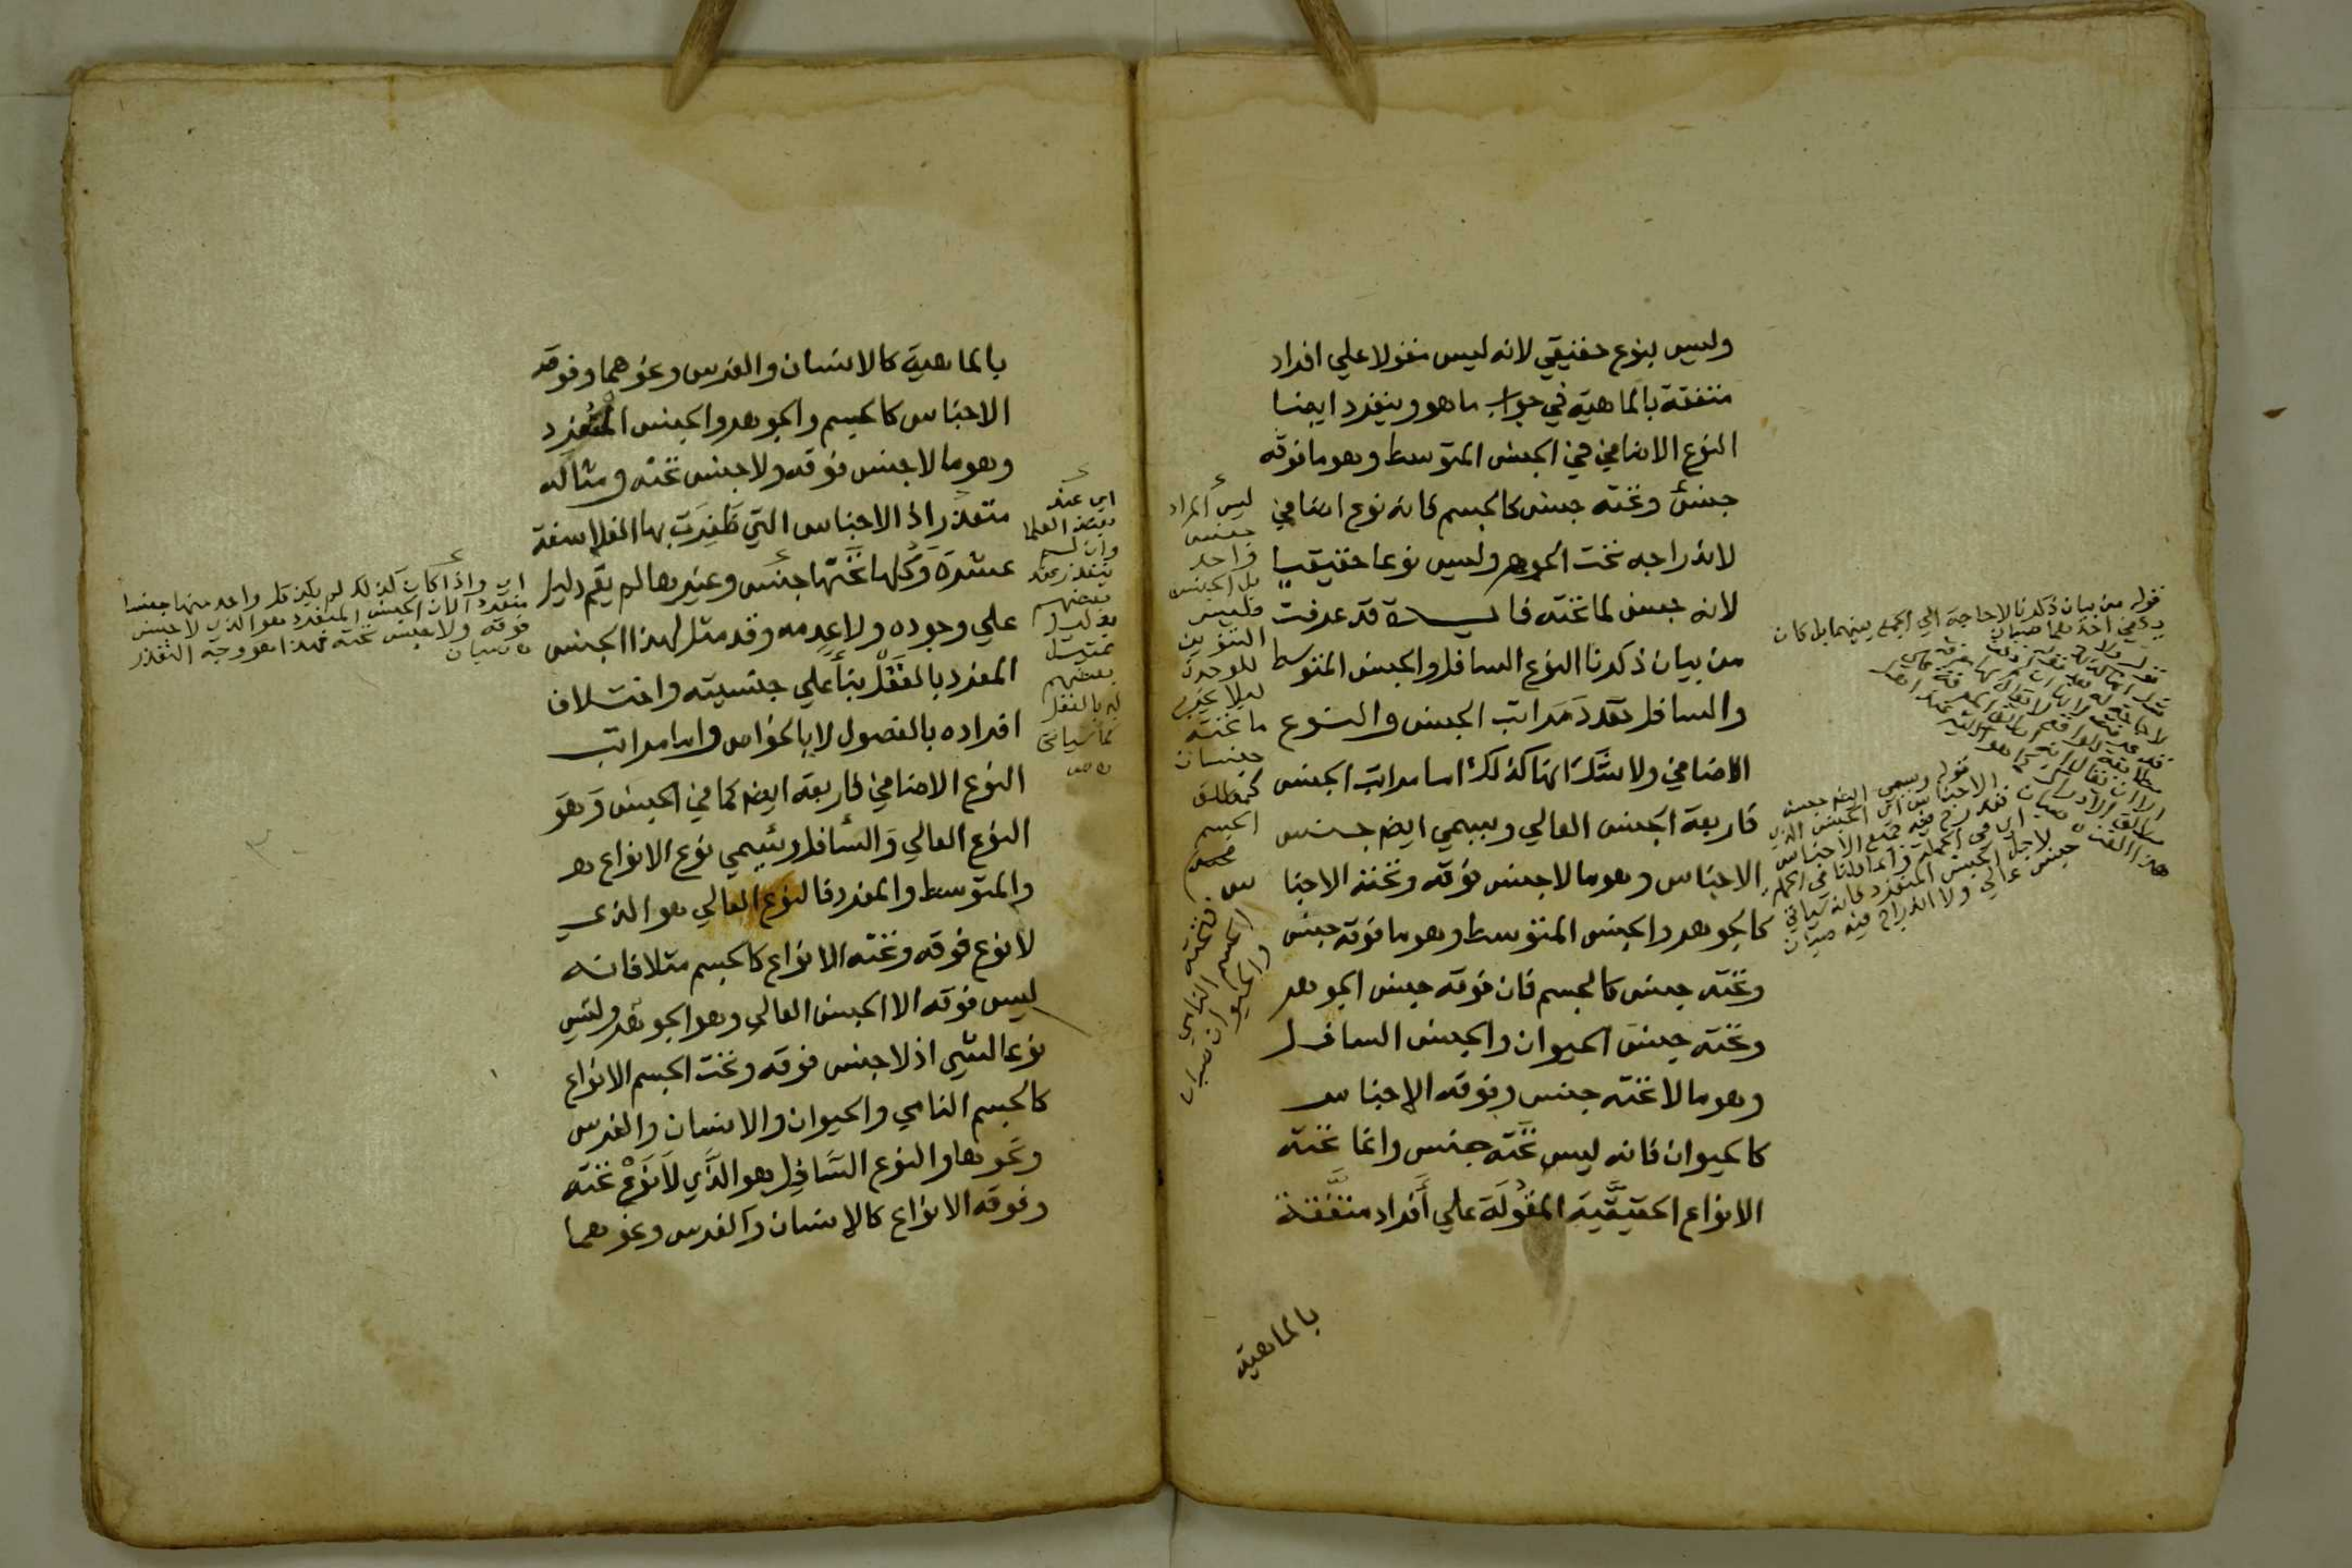 وليس بنوع حقيقي لانه ليس مقولا علي افراد
متفقة بالماهية في جواب ما هو وينفرد ايضا
النوع الاضافي في الجنس المتوسط وهو ما فوقه
جنس وتحته جنس كالجسم فانه نوع اضافي
لاندراجه تحت الجوهر وليس نوعا حقيقيا
لانه جنس لما تحته فايدة قد عرفت
من بيان ذكرنا النوع السافل والجنس المتوسط
والسافل تعدد مراتب الجنس والنوع
الاضافي ولا شك انها كذلك اما مراتب الجنس
فاربعة الجنس العالي ويسمي ايضا جنس
الاجناس وهو ما لا جنس فوقه وتحته الاجنا
س
كالجوهر والجنس المتوسط وهو ما فوقه جنس
وتحته جنس كالجسم فان فوقه جنس الجوهر
وتحته جنس الحيوان والجنس السافل
وهو ما لا تحته جنس وفوقه الاجناس
كالحيوان فانه ليس تحته جنس وانما تحته
الانواع الحقيقية المقولة علي أفراد متفقة
بالماهية
ليس المراد
جنس
واحد
بل الجنس
فليس
التنوين
للوحدة
ليلا يخرج
ما تحته
جنسان
كمطلق
الجسم
فتحته
الجسم النامي
والحيوان صبان
قوله من بيان ذكرنا لا حاجة الي الجمع بينهما بل كان
قوله ويسمي ايضا جنس
الاجناس اي الجنس الذي
تندرج فيه جميع الاجناس
اي في الجملة وانما قلنا في الجملة
لاجل الجنس المنفرد فانه سياتي
جنس عالي ولا اندراج فيه صبان
بالماهية كالانسان والفرس ونحوهما وفوقه
الاجناس كالجسم والجوهر والجنس المنفرد
وهو ما لا جنس فوقه ولا جنس تحته ومثاله
متعذر اذ الاجناس التي ظَفِرَت بها الفلاسفة
عشرة وكلها تحتها جنس وغيرها لم يقم دليل
علي وجوده ولا عدمه وقد مثل لهذا الجنس
المفرد بالعقل بناء علي جنسيته واختلاف
افراده بالفصول لا بالخواص واما مراتب
النوع الاضافي فاربعة ايضا كما في الجنس وَهوَ
النوع العالي وَالسافل وَيُسمي نوع الانواع هـ
والمتوسط والمفرد فالنوع العالي هو الذي
لا نوع فوقه وتحته الانواع كالجسم مثلا فانه
ليس فوقه الا الجنس العالي وهو الجوهر وليس
نوعا لشي اذ لا جنس فوقه وتحت الجسم الانواع
كالجسم النامي والحيوان والانسان والفرس
ونحوها والنوع السَّافِل هو الذَّي لَا نَوْعَ تحته
وفوقه الانواع كالإنسان والفرس ونحوهما
اي عند
بعض العلما
وان لم
يتعذر عند
بعضهم
بدليل
تمثيل
بعضهم
له بالعقل
كما سياتي
اي واذا كان كذلك لم يكن كل واحد منها جنسا
منفردا لان الجنس المنفرد هو الذي لا جنس
فوقه ولا جنس تحته فهذا هو وجه التعذر
صبان